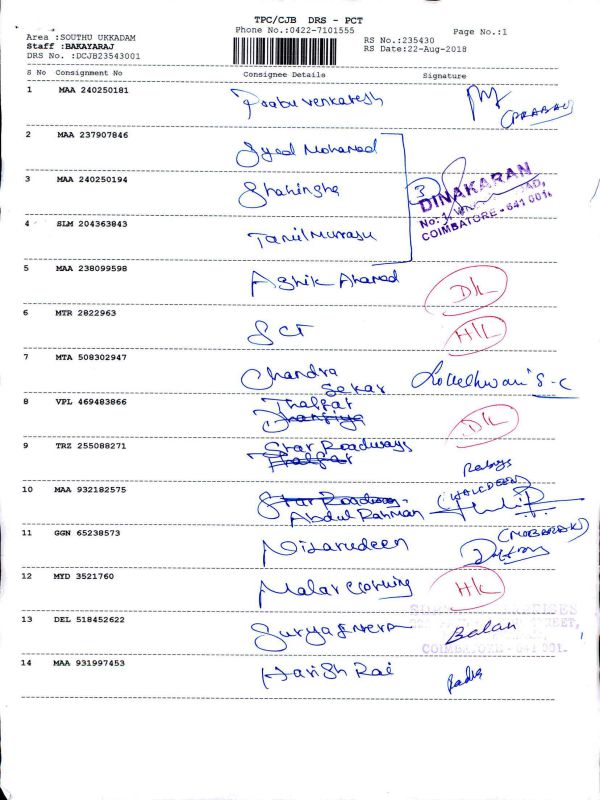 TPC/CJB DRS - PCT
Phone No.:0422-7101555
Page No.:1
Area :SOUTHU UKKADAM
Staff :BAKAYARAJ
DRS No. :DCJB23543001
RS No.:235430
RS Date:22-Aug-2018
S No Consignment No Consignee Details Signature
1 MAA 240250181 Prabu Venkatesh (PRABAU)
2 MAA 237907846 Syed Mohamed
3 MAA 240250194 Shahingha 3
DINAKARAN
No: 1,
COIMBATORE - 641 001.
4 SLM 204363843 Tamil Murrasu
5 MAA 238099598 Ashik Ahamed D/L
6 MTR 2822963 SCT H/L
7 MTA 508302947 Chandra
Sekar
8 VPL 469483866 Thalfar
D/L
9 TRZ 255088271 Star Roadways
Thalfar
10 MAA 932182575 Star Roadways
Abdul Rahman
11 GGN 65238573 Nizarudeen (MOBARAK)
12 MYD 3521760 Malar Clothing H/L
13 DEL 518452622 Balan
COIMBATORE - 641 001.
14 MAA 931997453 Harish Rai